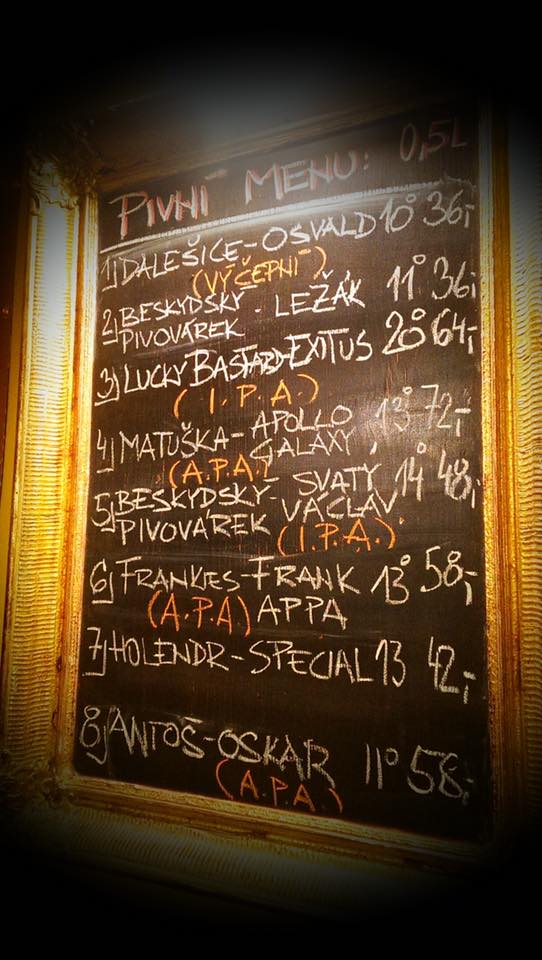 PIVNÍ MENU: 0,5L
1) DALEŠICE-OSVALD 10° 36,-
(VÝČEPNÍ)
2) BESKYDSKÝ - LEŽÁK 11° 36,-
PIVOVÁREK
3) LUCKY BASTARD-EXITUS 20° 64,-
(I.P.A.)
4) MATUŠKA- APOLLO 13° 72,-
GALAXY
(A.P.A.)
5) BESKYDSKÝ- SVATÝ 14° 48,-
PIVOVÁREK VÁCLAV
(I.P.A.)
6) FRANKIES-FRANK 13° 58,-
(A.P.A) APPA
7) HOLENDR-SPECIAL 13 42,-
8) ANTOŠ-OSKAR 11° 58,-
(A.P.A.)